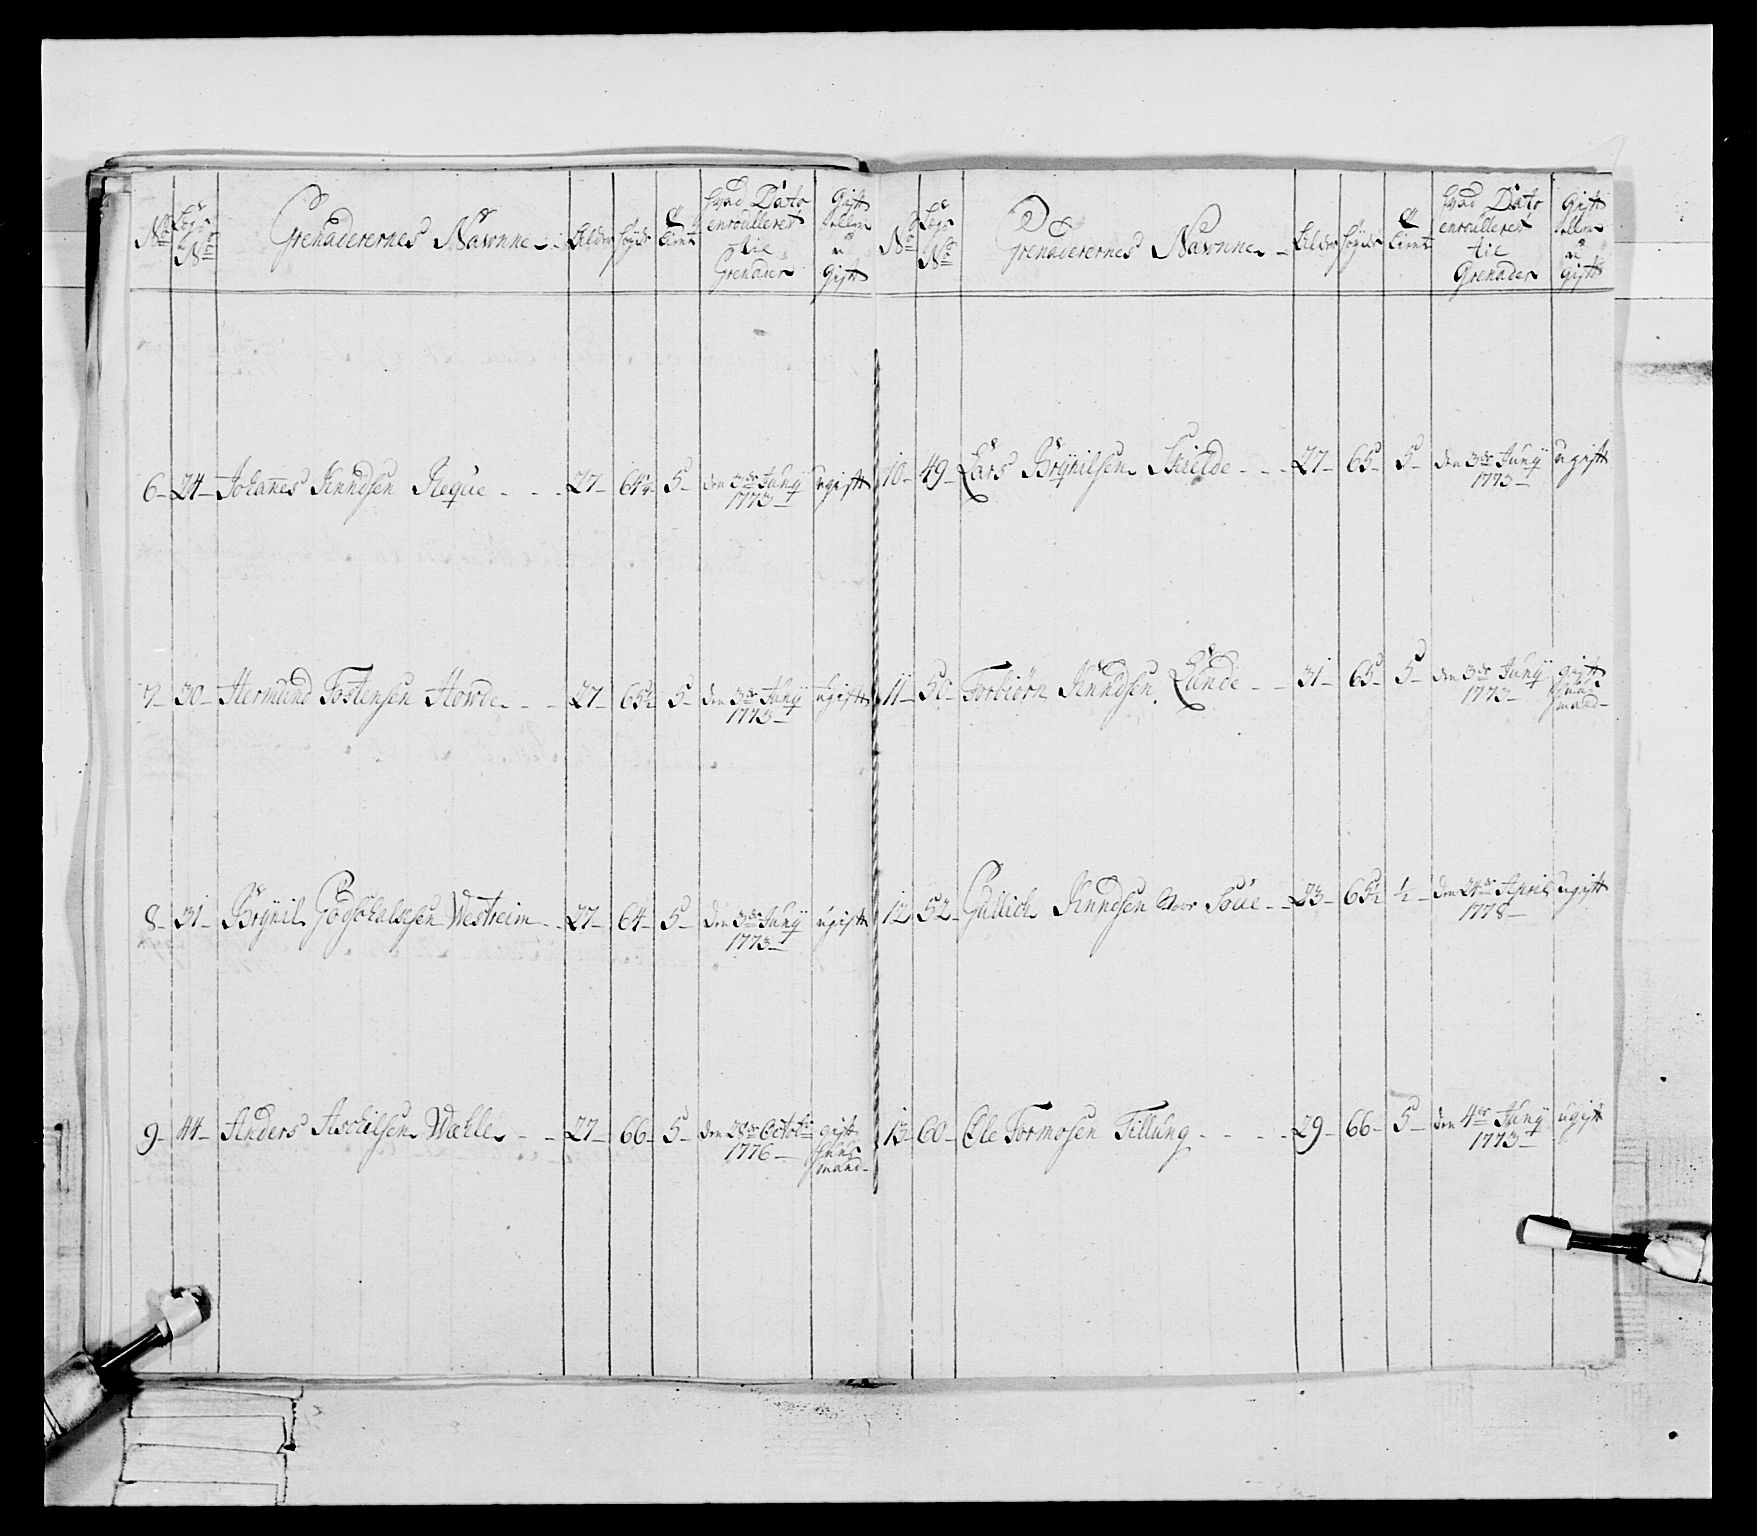 No
Lægs No
Grenaderernes Navnne
Alder
Høyde
Tient
hvad Dato enroulleret til Grenader
Gift eller u Gift
6 24 Johannes Knudsen Reque 27 64¼ 5 den 3de Juny 1773 ugift
7 30 Hermund Tostensen Howde 27 65½ 5 den 3de Juny 1773 ugift
8 31 Brynil Godschalcksen Westreim 27 64 5 den 3de Juny 1773 ugift
9 44 Anders Aschilsen Wæhle 27 66 5 den 28de Octobr 1776 gift huus mand
No
Lægs No
Grenaderernes Navnne
Alder
Høyde
Tient
hvad Dato enroulleret til Grenader
Gift eller u Gift
10 49 Lars Brynilsen Skielde 27 65 5 den 3de Juny 1773 ugift
11 50 Torbiørn Knudsen Lunde 31 65 5 den 3de Juny 1773 gift huus mand
12 52 Gullich Knudsen Soue 23 65½ ½ den 24de April 1778 ugift
13 60 Ole Tormosen Tillung 29 66 5 den 4de Juny 1773 ugift